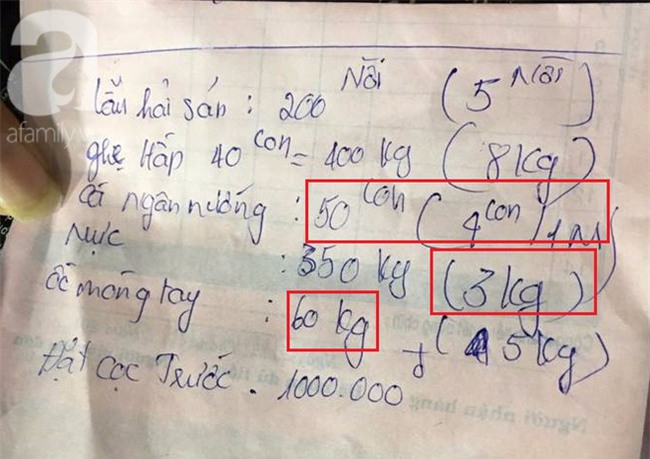 a
afamily.vn
Lẩu hải sản : 200 Nồi (5 Nồi)
ghẹ Hấp 40 con = 400 kg (8kg)
Cá ngân nướng : 50 con (4 con/1
Mực : 350 kg (3kg)
ốc móng tay : 60 kg (5kg)
Đặt cọc Trước . 1000.000
Người nhận hàng